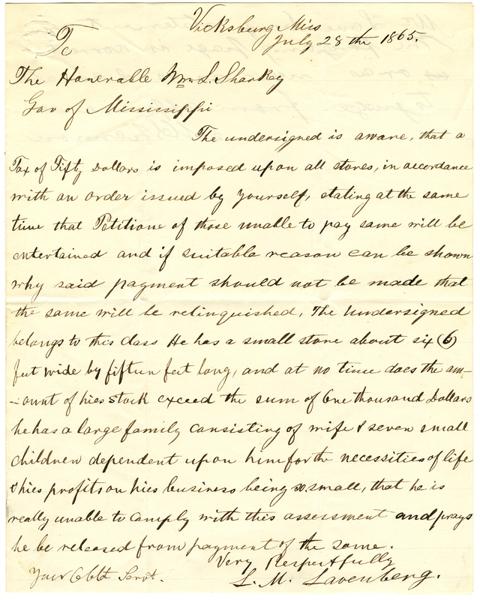 Vicksburg Miss
July 28th 1865.
To
The Honerable Wm L. Sharkey
Gov of Mississippi
The undersigned is aware, that a
Tax of Fifty Dollars is imposed upon all stores, in accordance
with an order issued by yourself, stating at the same
time that Petitions of those unable to pay same will be
entertained and if suitable reason can be shown
why said payment should not be made that
the same will be relinquished, The undersigned
belongs to this class He has a small store about six (6)
feet wide by fifteen feet long, and at no time does the am-
-ount of hies stock exceed the sum of One thousand Dollars
he has a large family consisting of wife & seven small
children dependent upon him for the necessities of life
& hies profits on hies business being so small, that he is
really unable to comply with this assessment and prays
he be released from payment of the same.
Very Respectfully
Your Obdt Servt.
L. M. Lavenberg.